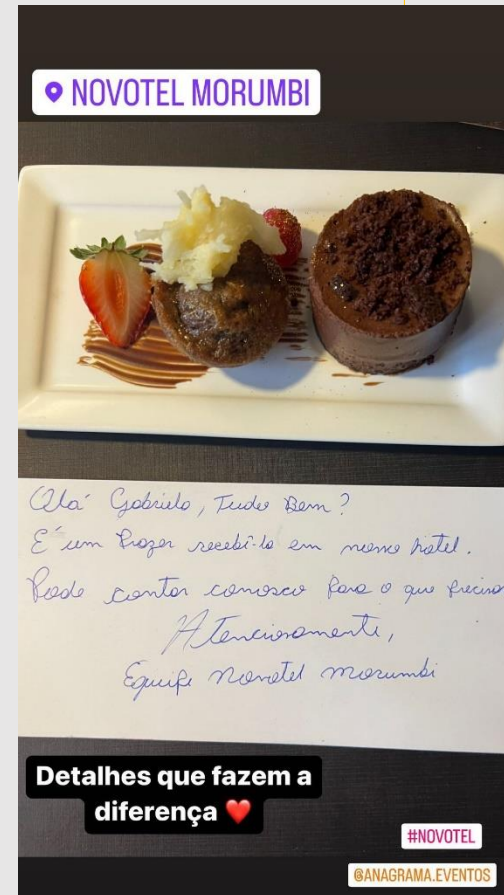 NOVOTEL MORUMBI
Olá Gabriela, Tudo Bem?
É um Prazer recebê-la em nosso hotel.
Pode contar conosco para o que precisar
Atenciosamente,
Equipe Novotel Morumbi
Detalhes que fazem a
diferença ❤️
#NOVOTEL
@ANAGRAMA.EVENTOS